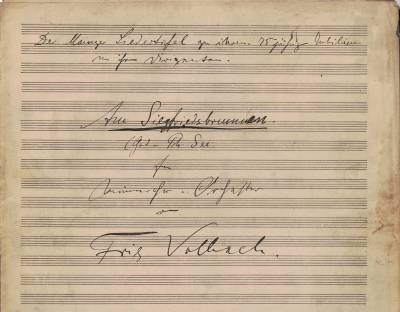 Der Mainzer Liedertafel zu ihrem 75 jähr. Jubiläum
u ihrem Dirigenten.
Am Siegfriedsbrunnen.
(Ged. - Ph. See.
für
Männerchor u. Orchester
von
Fritz Volbach.